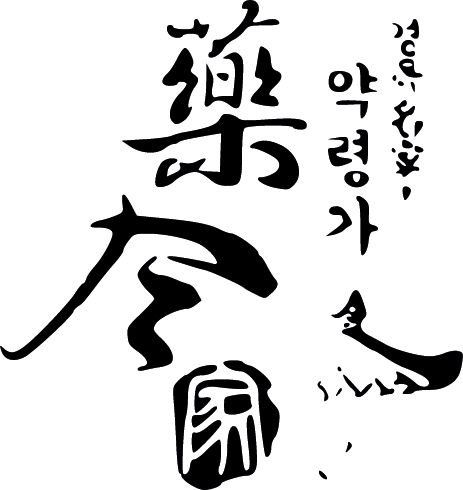 藥令家
약령가